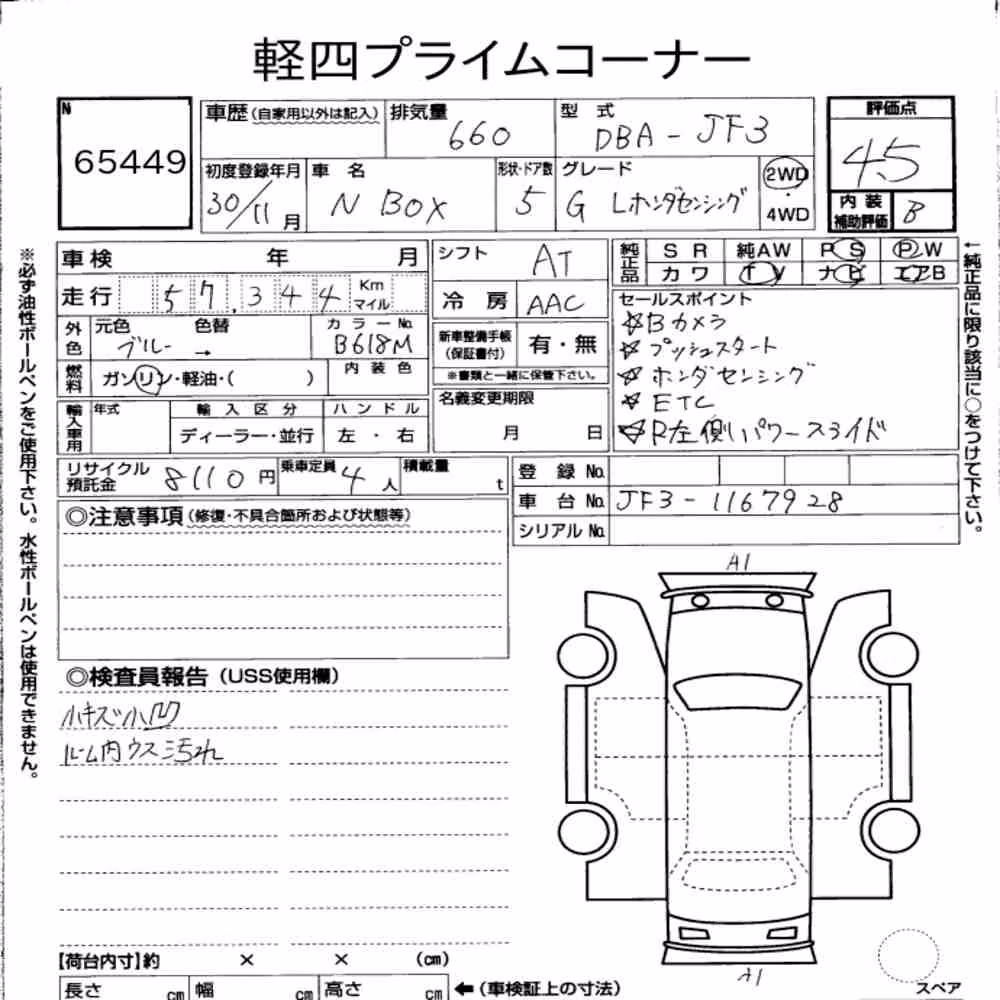 軽四プライムコーナー
N
65449
車歴(自家用以外は記入)
排気量 660
型式 DBA-JF3
評価点 4.5
初度登録年月 30/11月
車名 N BOX
形状・ドア数 5
グレード G Lホンダセンシング
2WD・4WD
内装補助評価 B
車検 年 月
シフト AT
純正品 SR 純AW PS PW
カワ TV ナビ エアB
走行 57,344 Km マイル
冷房 AAC
セールスポイント
☆Bカメラ
☆プッシュスタート
☆ホンダセンシング
☆ETC
☆R左側パワースライド
外色 元色 ブルー 色替 →
カラーNo. B618M
新車整備手帳(保証書付) 有・無
※書類と一緒に保管下さい。
燃料 ガソリン・軽油・( )
内装色
名義変更期限 月 日
輸入車用 年式 輸入区分 ハンドル
ディーラー・並行 左・右
リサイクル預託金 8110円
乗車定員 4人
積載量 t
登録No.
車台No. JF3-1167928
シリアルNo.
◎注意事項(修復・不具合箇所および状態等)
A1
◎検査員報告(USS使用欄)
小キズ小凹
ルーム内ウス汚れ
【荷台内寸】約 × × (cm)
長さ cm 幅 cm 高さ cm ←(車検証上の寸法)
A1
スペア
※必ず油性ボールペンをご使用下さい。水性ボールペンは使用できません。
←純正品に限り該当に○をつけて下さい。